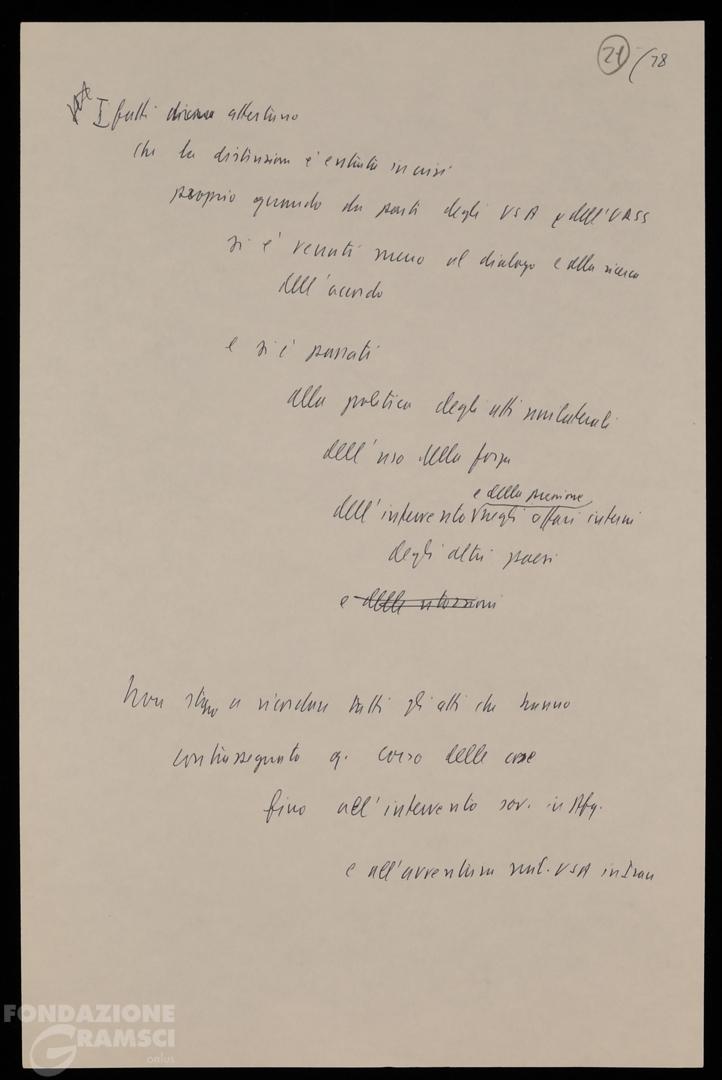 21 / 78
I fatti dicono attestano
che la distensione è entrata in crisi
proprio quando da parte degli USA e dell'URSS
si è venuti meno al dialogo e alla ricerca
dell'accordo
e si è passati
alla politica degli atti unilaterali
dell'uso della forza
e della pressione
dell'intervento negli affari interni
degli altri paesi
e delle ritorsioni
Non stiamo a ricordare tutti gli atti che hanno
contrassegnato q. corso delle cose
fino all'intervento sov. in Afg.
e all'avventura mil. USA in Iran
FONDAZIONE
GRAMSCI
onlus